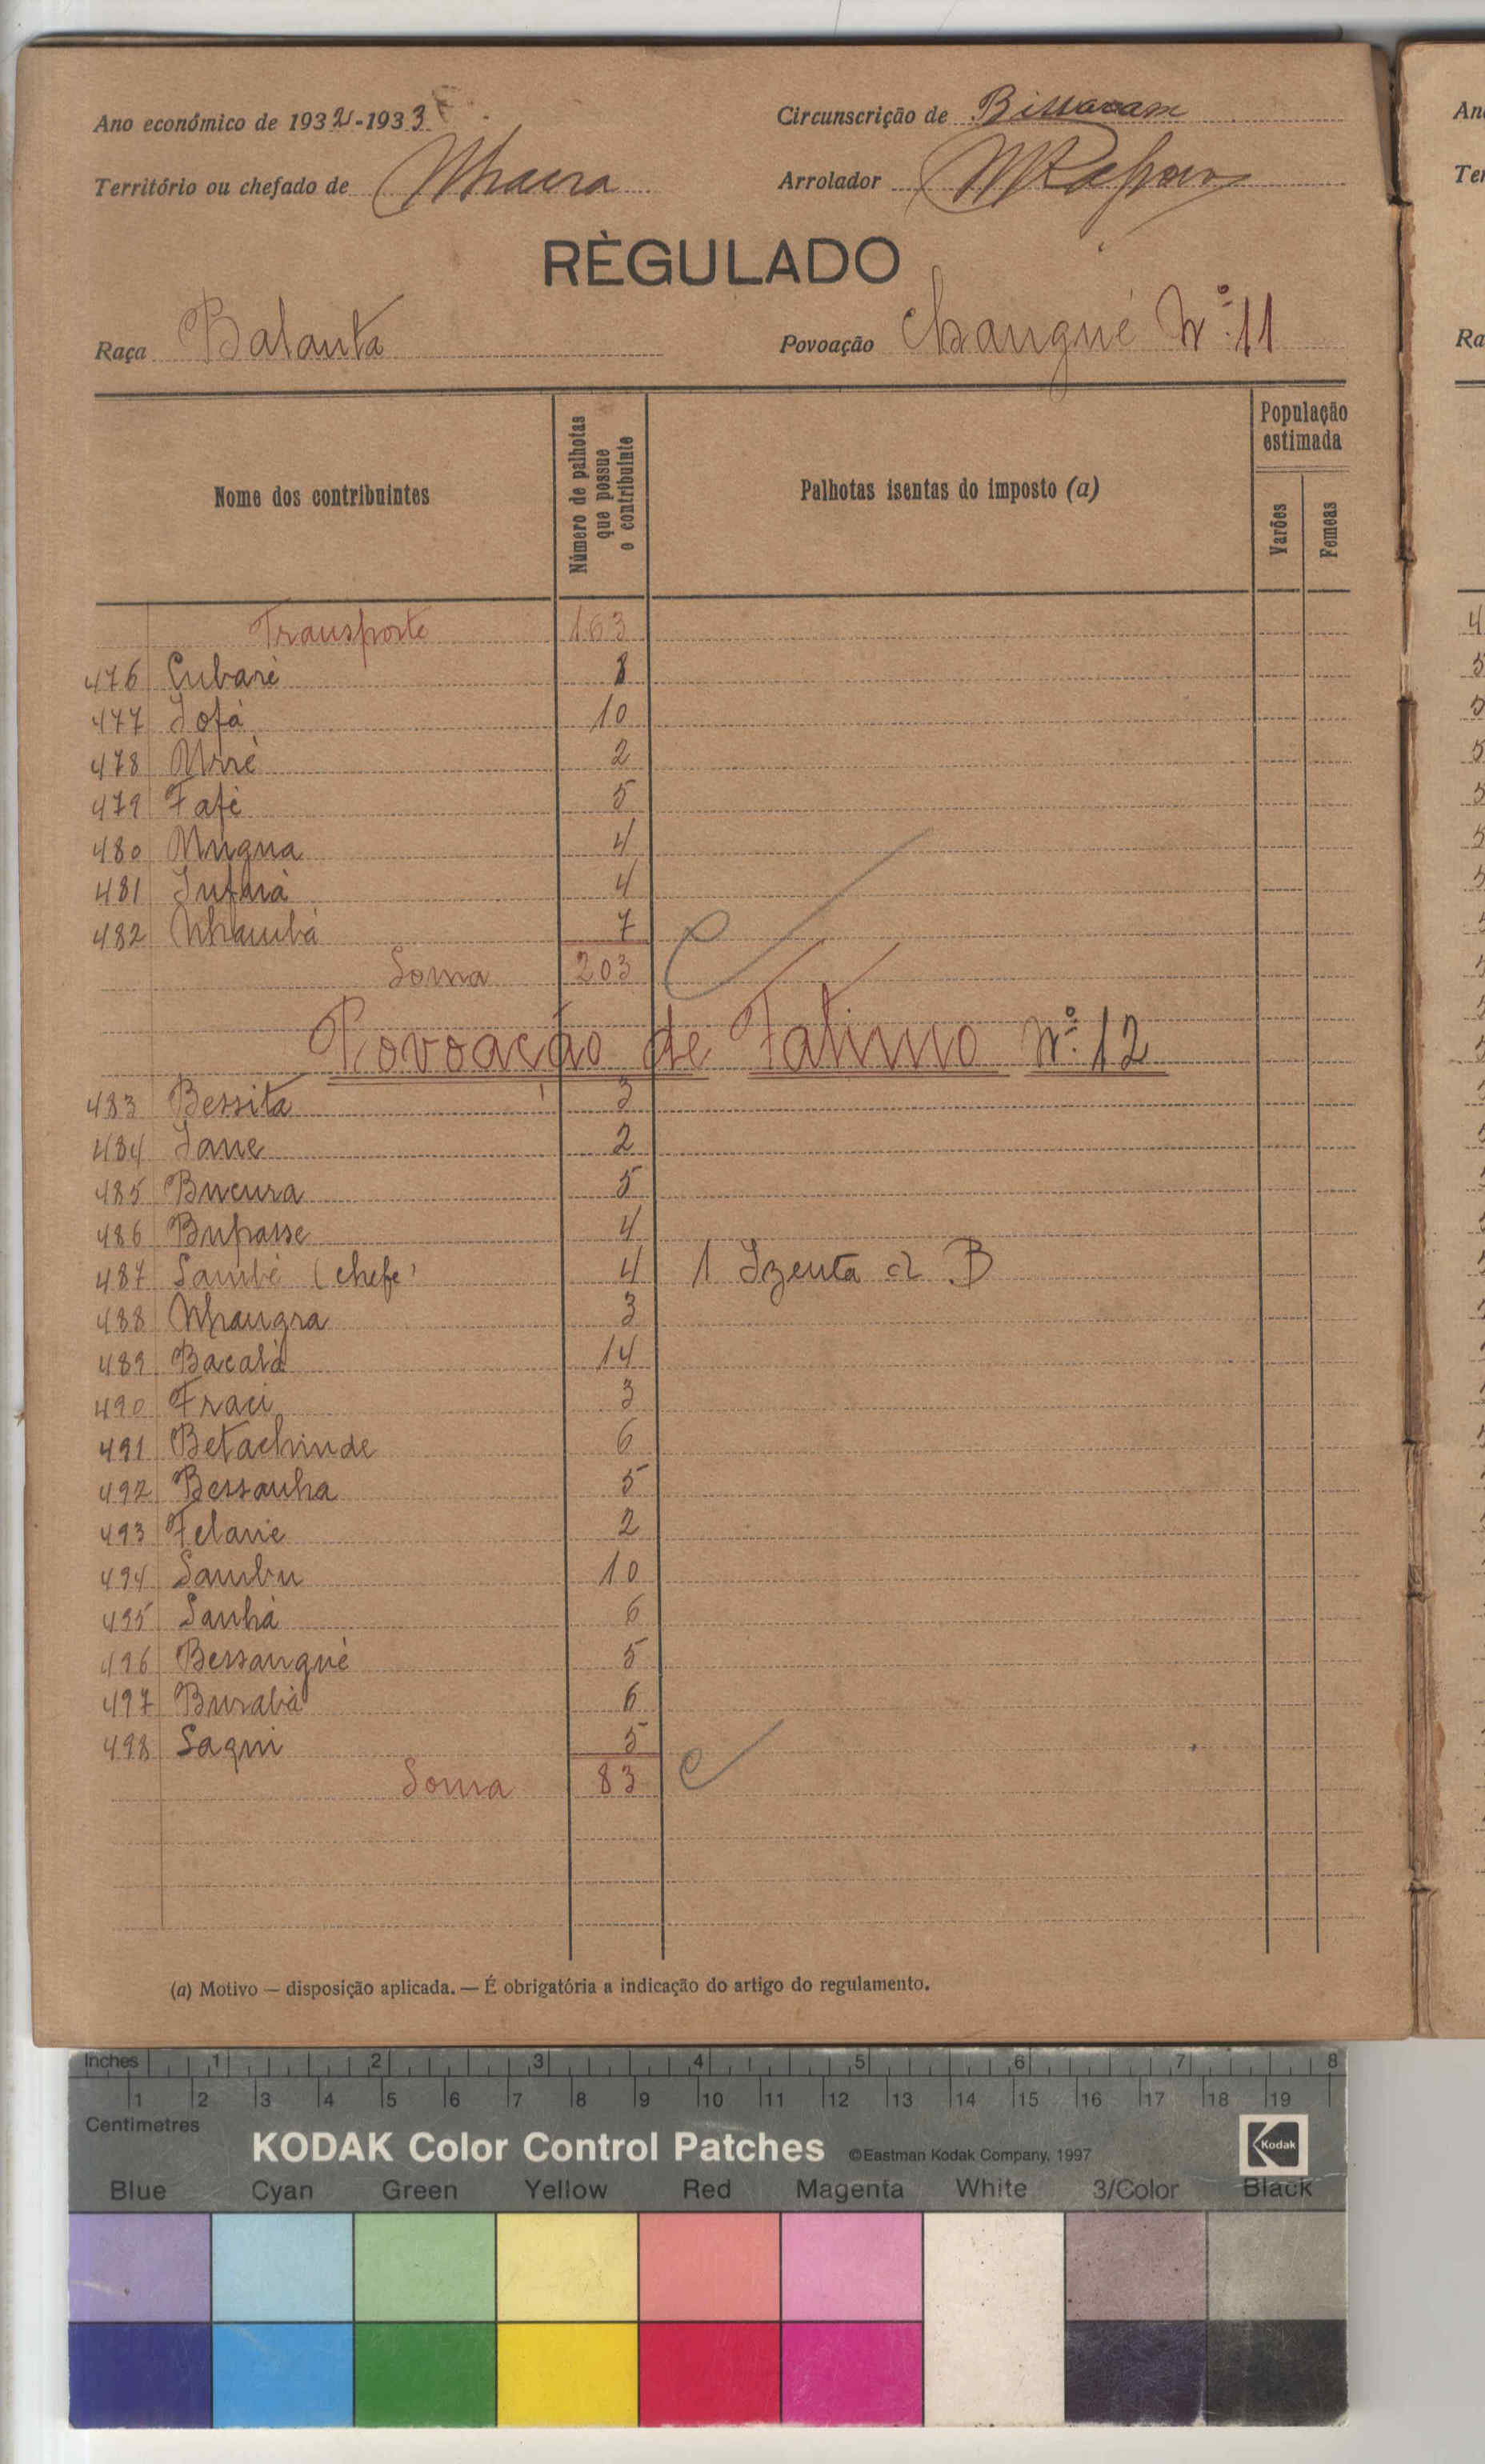 Ano económico de 1932-1933
Circunscrição de Bissoram
Território ou chefado de Nhacra
Arrolador
RÈGULADO
Raça Balanta
Povoação Changué Nº 11
Nome dos contribuintes
Número de palhotas que possue o contribuinte
Palhotas isentas do imposto (a)
População estimada
Varões
Femeas
Transporte 163
476 Cubaré 8
477 Jofá 10
478 2
479 Fafé 5
480 Mugna 4
481 4
482 Nhambá 7
Soma 203
Povoação de Fatimo Nº 12
483 Bessita 3
484 Jane 2
485 Bucura 5
486 Bupasse 4
487 Sambé (chefe) 4 1 Izenta B
488 Nhangra 3
489 Bacalá 14
490 Fraci 3
491 Betachinde 6
492 Bessanha 5
493 Felane 2
494 Sambu 10
495 Sanhá 6
496 Bessangué 5
497 Burabá 6
498 Sagni 5
Soma 83
(a) Motivo — disposição aplicada. — É obrigatória a indicação do artigo do regulamento.
Inches 1 2 3 4 5 6 7 8
1 2 3 4 5 6 7 8 9 10 11 12 13 14 15 16 17 18 19
Centimetres
KODAK Color Control Patches ©Eastman Kodak Company, 1997 Kodak
Blue Cyan Green Yellow Red Magenta White 3/Color Black